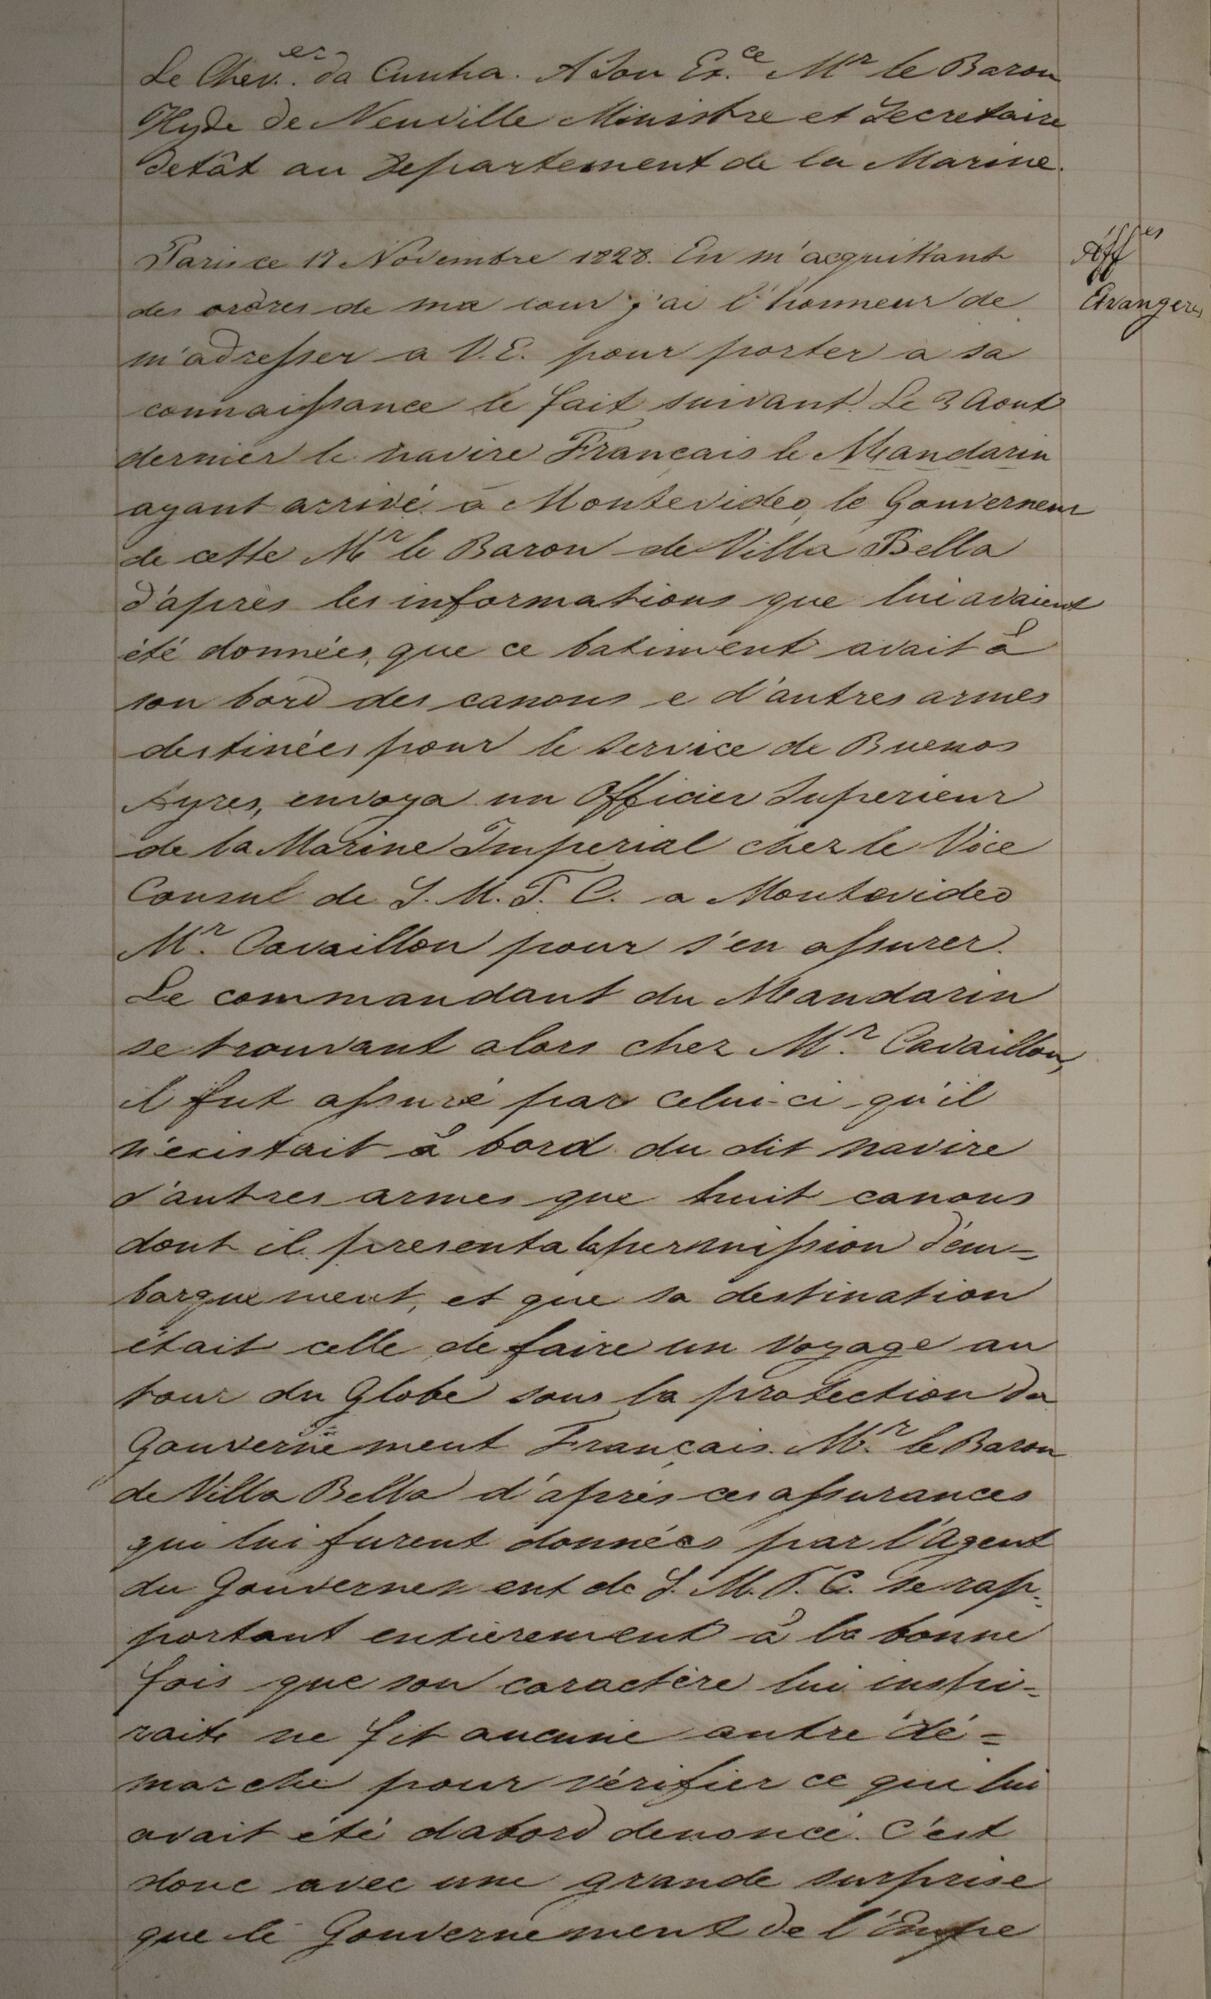 Le Chev.er da Cunha. A Son Ex.ce Mr le Baron
Hyde de Neuville Ministre et Secretaire
detât au Departement de la Marine.
Paris ce 17 Novembre 1828. En m'acquittant
Affes
des ordres de ma cour j'ai l'honneur de
Etrangeres
m'adresser a V.E. pour porter a sa
connaissance le fait suivant. Le 3 Aout
dernier le navire Français le Mandarin
ayant arrivé à Montevideo, le Gouverneur
de cette Mr le Baron de Villa Bella
d'après les informations que lui avaient
été données, que ce batiment avait à
son bord des canons e d'autres armes
destinées pour le service de Buenos
Ayres, envoya un Officier Superieur
de la Marine Imperial chez le Vice
Consul de S. M. T. C. a Montevideo
Mr. Cavaillon pour s'en assurer.
Le commandant du Mandarin
se trouvant alors chez Mr. Cavaillon,
il fut assuré par celui-ci qu'il
n'existait à bord du dit navire
d'autres armes que huit canons
dont il presenta la permission d'em=
barquement, et que sa destination
était celle de faire un voyage au
tour du Globe sous la protection du
Gouvernement Français. Mr. le Baron
de Villa Bella d'après ces assurances
qui lui furent données par l'Agent
du Gouvernement de S. M. T. C. se rap=
portant entierement à la bonne
fois que son caractère lui inspi=
raits ne fit aucune autre dé=
marche pour vérifier ce qui lui
avait été dabord denoncé. C'est
donc avec une grande surprise
que le Gouvernement de l'Empre